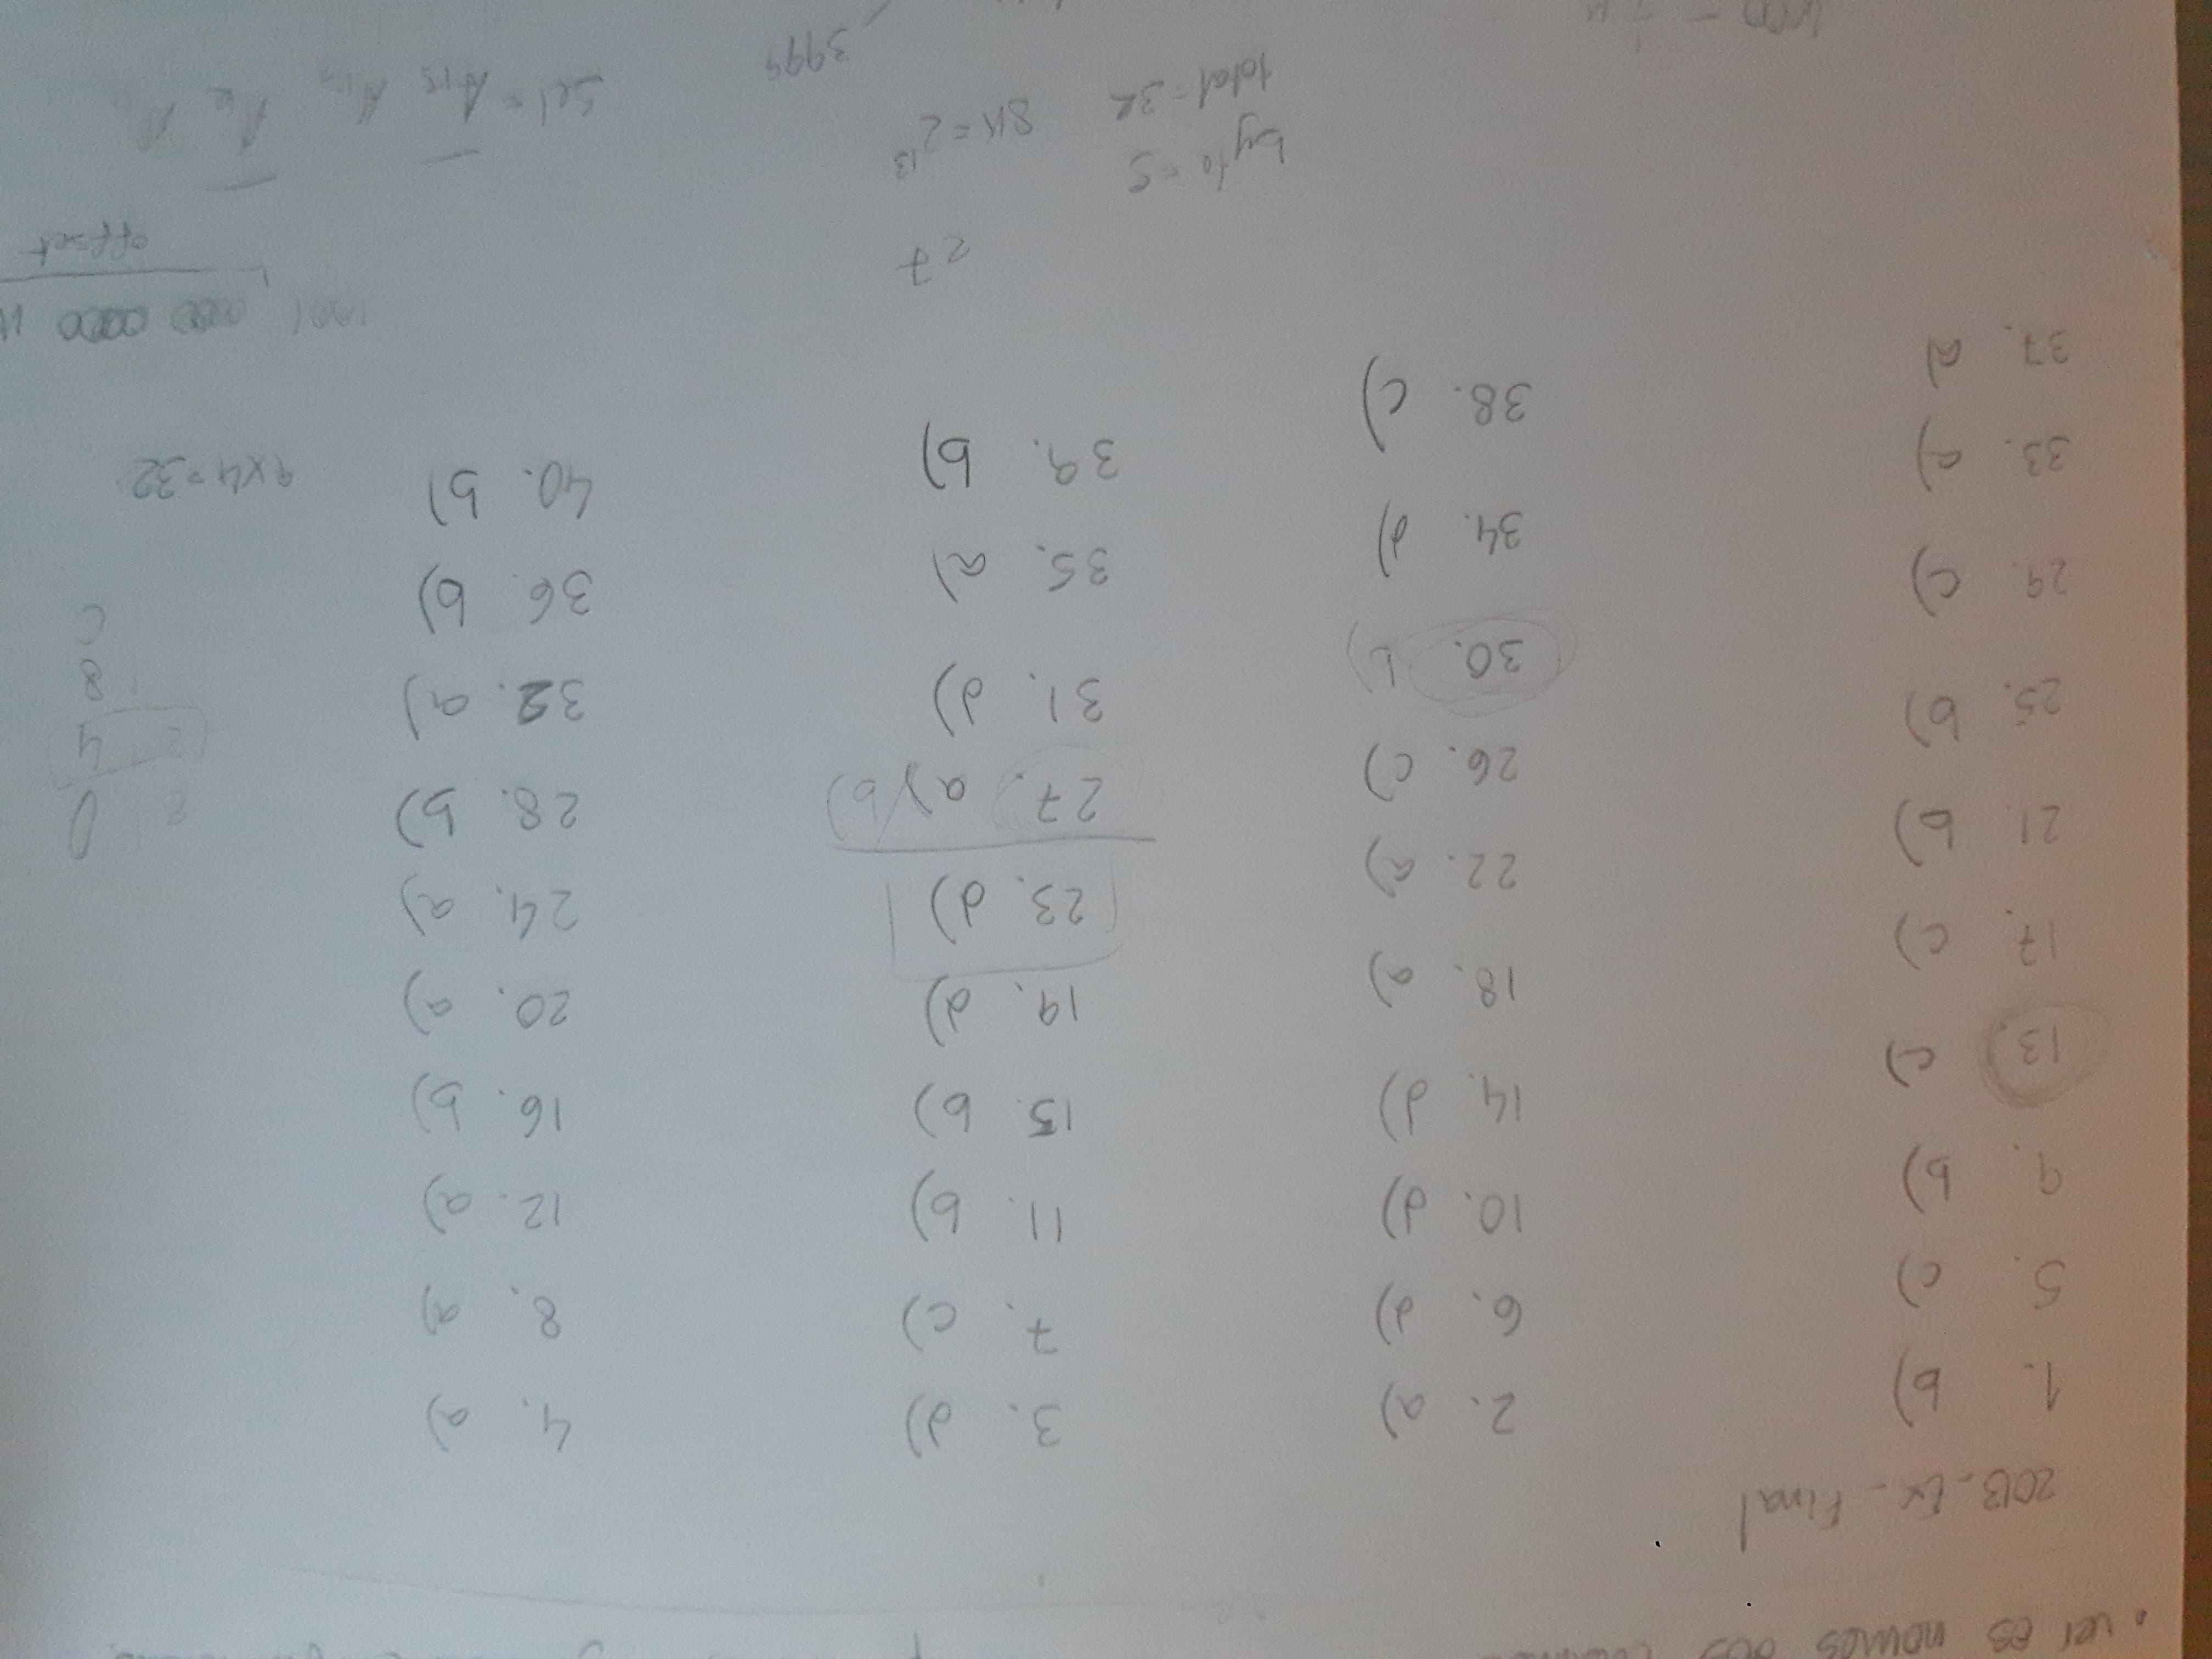 • ver os nomes dos
2013_Ex_Final
1. b) 2. a) 3. d) 4. a)
5. c) 6. d) 7. c) 8. a)
9. b) 10. d) 11. b) 12. a)
13. c) 14. d) 15. b) 16. b)
17. c) 18. a) 19. d) 20. a)
21. b) 22. a) 23. d) 24. a)
25. b) 26. c) 27. a) b) 28. b)
29. c) 30. b) 31. d) 32. a)
33. a) 34. d) 35. a) 36. b)
37. a) 38. c) 39. b) 40. b)
0
4
8
C
x4=32
27
offset
byte = 5
total - 32 8K = 2^13
Sel = A15
3999